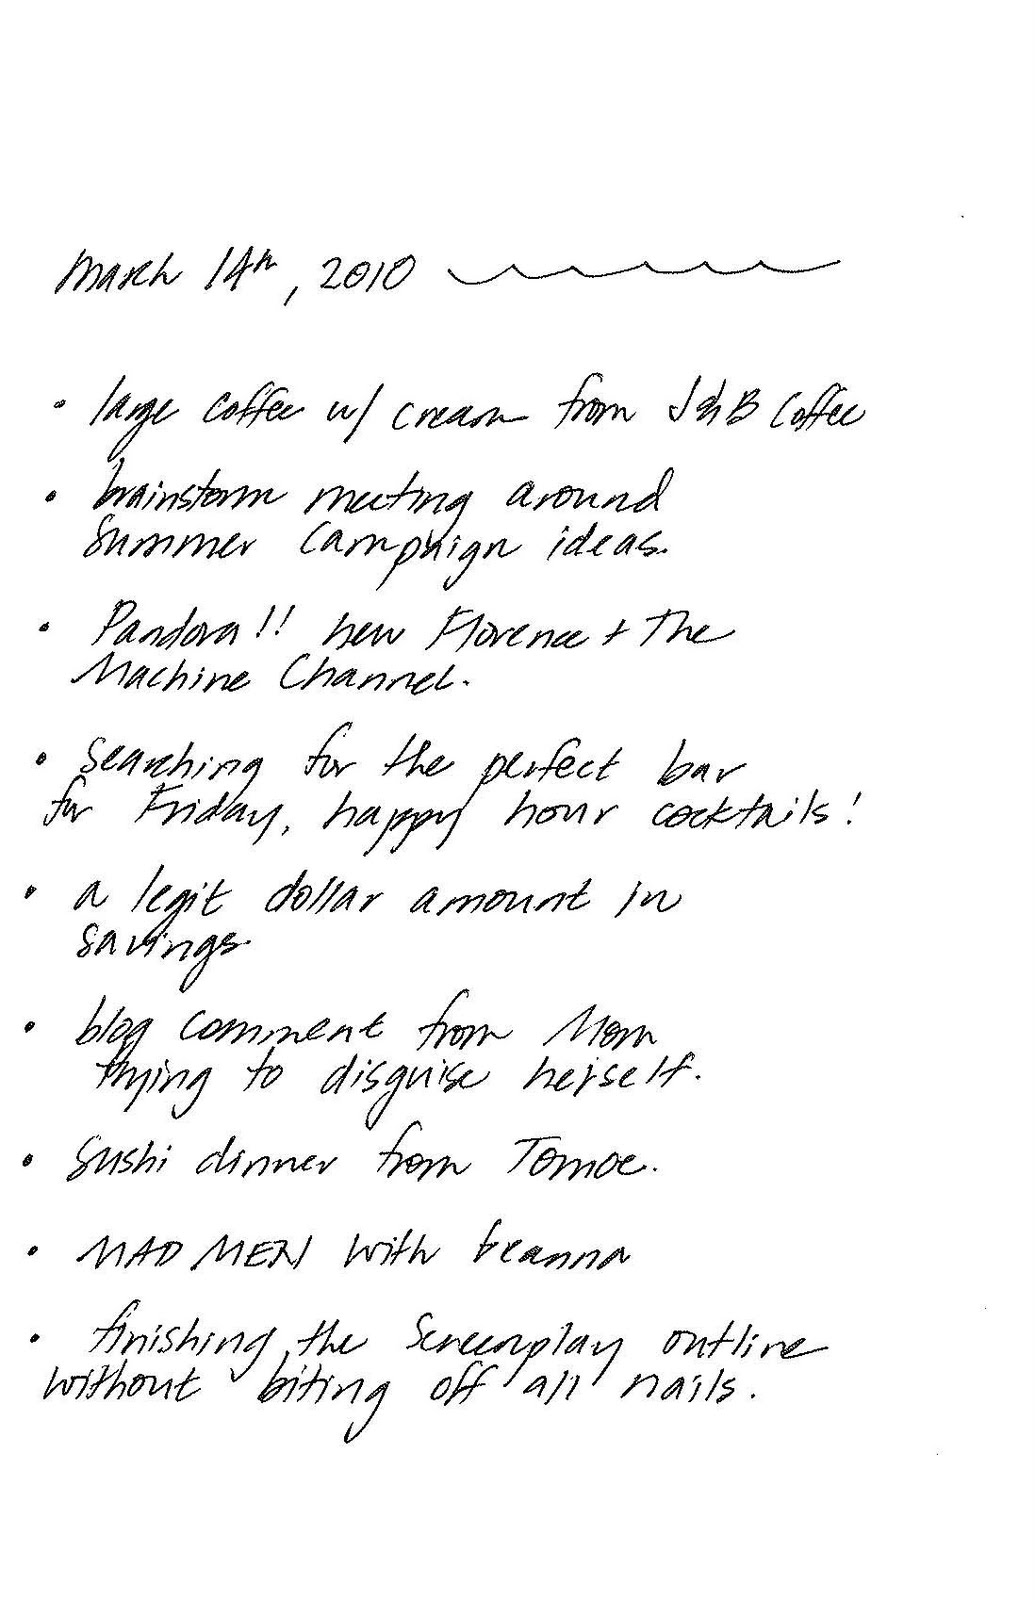 March 14th, 2010
• large coffee w/ cream from J&B Coffee
• brainstorm meeting around
Summer Campaign ideas.
• Pandora!! new Florence + The
Machine Channel.
• Searching for the perfect bar
for Friday, happy hour cocktails!
• a legit dollar amount in
savings.
• blog comment from Mom
trying to disguise herself.
• Sushi dinner from Tomoe.
• MAD MEN with
• finishing the Screenplay outline
without biting off all nails.